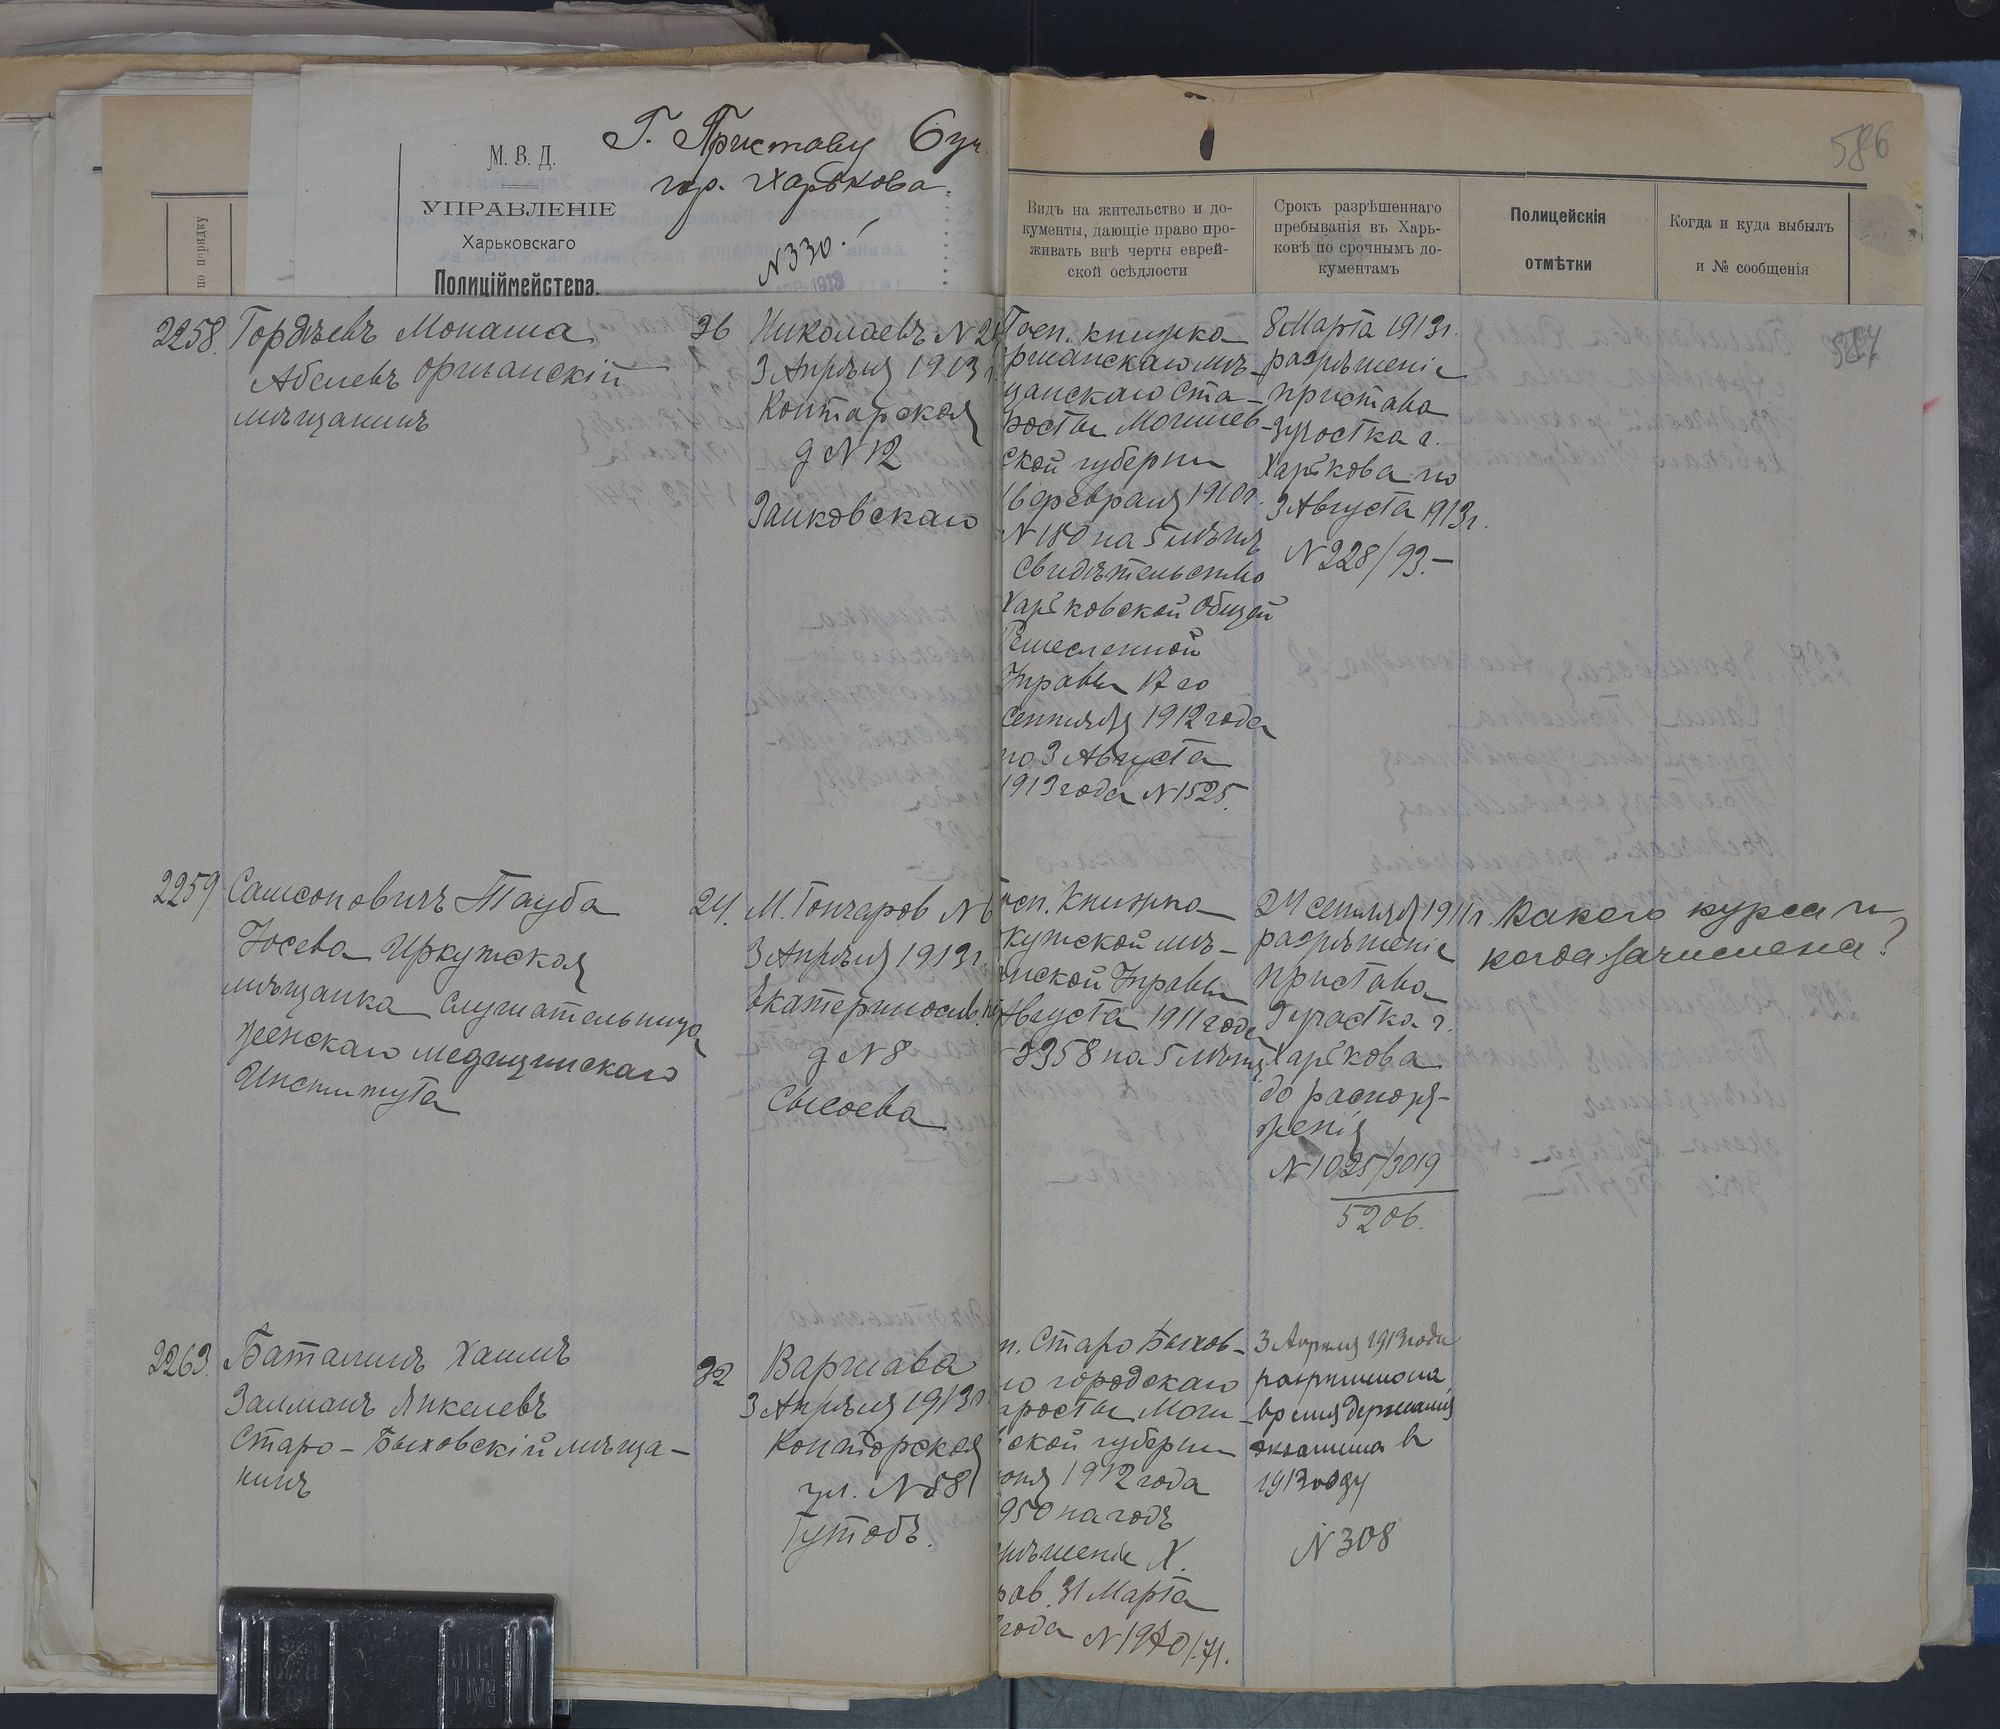 Г. Приставу 6 уч.
гор. Харькова.
М. В. Д.
УПРАВЛЕНІЕ
Харьковскаго
Полиціймейстера.
N 330.
по порядку
586
Видъ на жительство и до-
кументы, дающіе право про-
живать внѣ черты еврей-
ской осѣдлости
Срокъ разрѣшеннаго
пребыванія въ Харь-
ковѣ по срочнымъ до-
кументамъ
Полицейскія
отмѣтки
Когда и куда выбылъ
и № сообщенія
2258. Гордѣевъ Монаша
Абелевъ Оршанскій
мѣщанинъ
36
Николаевъ N
3 Апрѣля 1913 г.
Конторская
д N 12
Заиковскаго
Посп. книжка
Оршанскаго мѣ-
щанскаго Ста-
росты Могилев-
ской губерніи
16 февраля 1910 г.
N 180 на 5 лѣтъ
Свидѣтельство
Харьковской Общей
Ремесленной
Управы 17 го
Сентября 1912 года
по 3 Августа
1913 года N 1525.
8 Марта 1913 г.
разрѣшеніе
пристава
3 участка г.
Харькова по
3 Августа 1913 г.
N 228/93.-
2259 Самсоновичъ Тауба
Іосева Иркутская
мѣщанка слушательница
женскаго медицинскаго
Института
24.
М. Гончаров N 6
3 Апрѣля 1913 г.
Екатеринослв.
д N 8
Сысоева
осп. Книжка
кутской мѣ-
нской Управы
Августа 1911 года
3358 на 5 лѣтъ
24 сентября 1911 г.
разрѣшеніе
пристава
2 участка г.
Харькова
до распоря-
женія
N 1025/3019
5206.
Какого курса и
когда зачислена?
2263. Баталинъ Хаимъ
Залманъ Янкелевъ
Старо-Быховскій мѣща-
нинъ
32
Варшава
3 Апрѣля 1913 г.
Конторская
ул. N 88
Гутовъ.
п. Старо Быхов-
го городскаго
аросты Моги-
ской губерніи
юня 1912 года
950 на годъ
рѣшеніе Х.
ов. 31 Марта
года N 1970/71.
3 Апреля 1913 года
разрешено на
время держания
экзамена в
1913 году
N 308